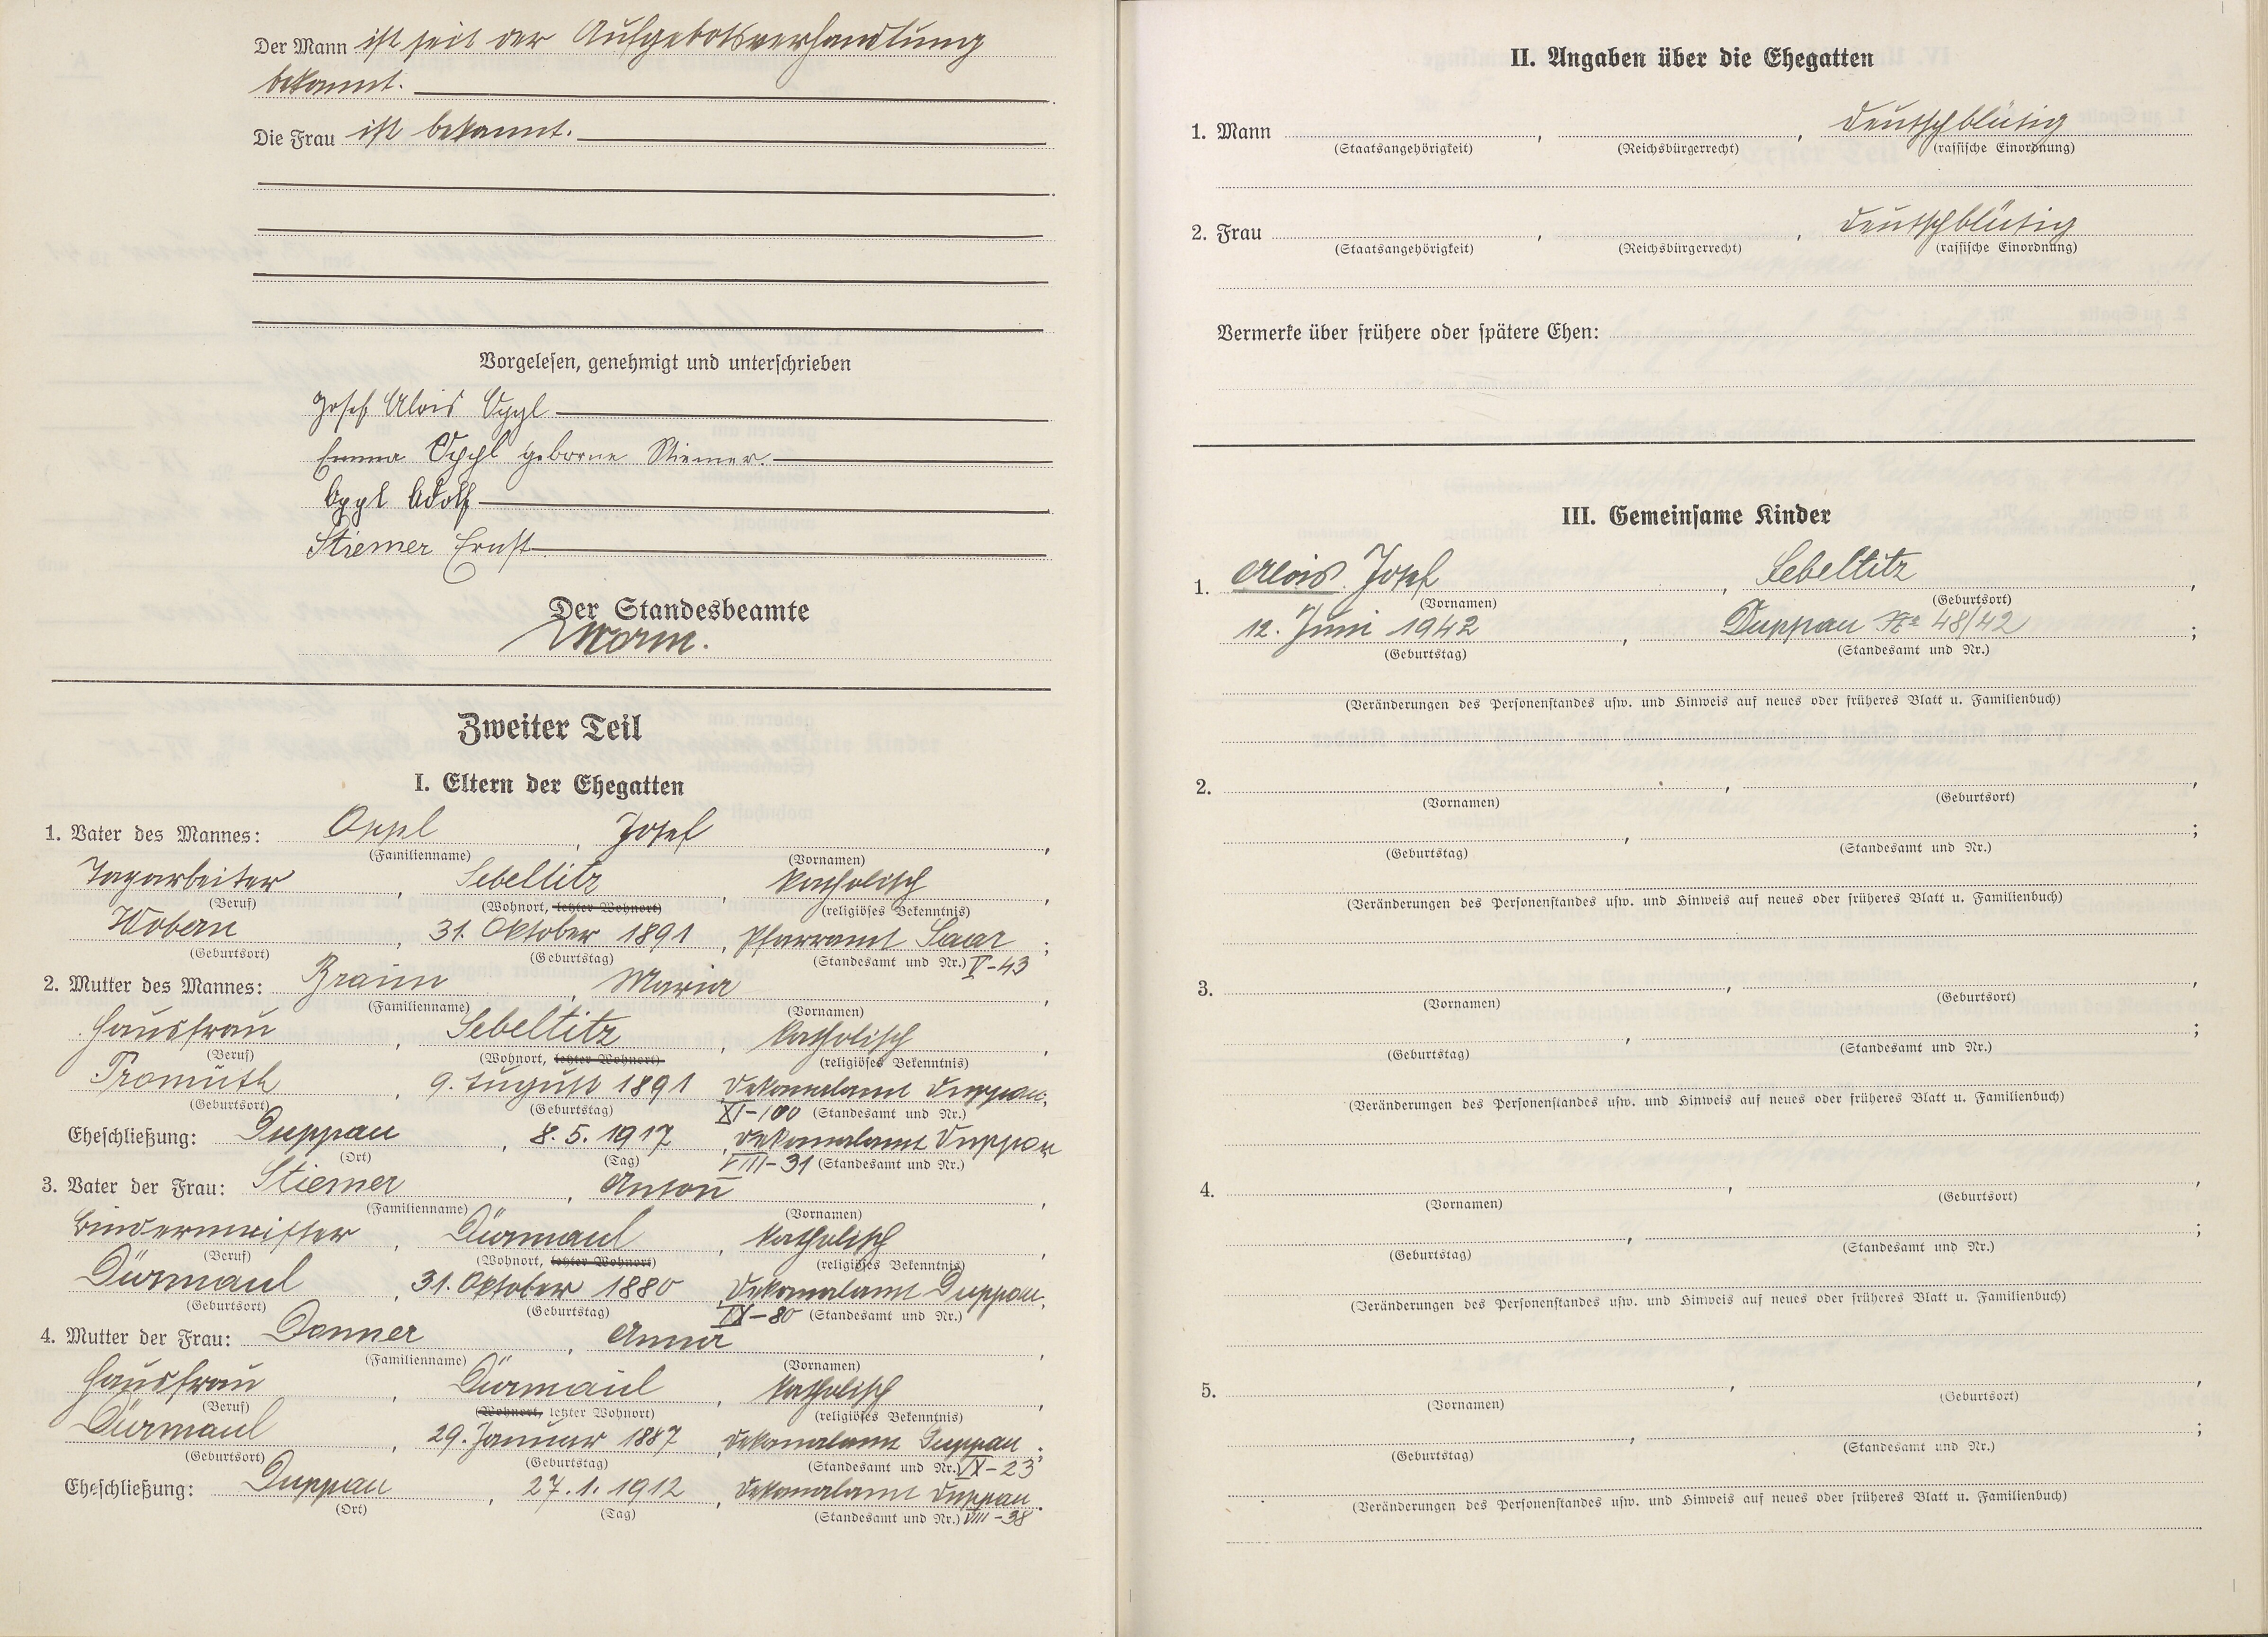 Der Mann ist seit der Aufgebotsverhandlung
bekannt.
Die Frau ist bekannt.
Vorgelesen, genehmigt und unterschrieben
Josef Alois Oppl
Emma Oppl geborne Stiemer.
Oppl Adolf
Stiemer Ernst
Der Standesbeamte
Worm.
Zweiter Teil
I. Eltern der Ehegatten
1. Vater des Mannes: Oppl, Josef,
(Familienname) (Vornamen)
Tagarbeiter, Sebeltitz, katholisch,
(Beruf) (Wohnort, letzter Wohnort) (religiöses Bekenntnis)
Wobern, 31. Oktober 1891, Pfarramt Saar;
(Geburtsort) (Geburtstag) (Standesamt und Nr.) V-43
2. Mutter des Mannes: Braun, Maria,
(Familienname) (Vornamen)
Hausfrau, Sebeltitz, katholisch,
(Beruf) (Wohnort, letzter Wohnort) (religiöses Bekenntnis)
Promuth, 9. August 1891 Dekanalamt Duppau,
(Geburtsort) (Geburtstag) XI-100 (Standesamt und Nr.)
Eheschließung: Duppau, 8. 5. 1917, Dekanalamt Duppau
(Ort) (Tag) VIII-31 (Standesamt und Nr.)
3. Vater der Frau: Stiemer, Anton,
(Familienname) (Vornamen)
Bindermeister, Dürmaul, katholisch,
(Beruf) (Wohnort, letzter Wohnort) (religiöses Bekenntnis)
Dürmaul, 31. Oktober 1880 Dekanalamt Duppau,
(Geburtsort) (Geburtstag) IX-80 (Standesamt und Nr.)
4. Mutter der Frau: Donner, Anna,
(Familienname) (Vornamen)
Hausfrau, Dürmaul, katholisch,
(Beruf) (Wohnort, letzter Wohnort) (religiöses Bekenntnis)
Dürmaul, 29. Januar 1887 Dekanalamt Duppau;
(Geburtsort) (Geburtstag) (Standesamt und Nr.) IX-23
Eheschließung: Duppau, 27. 1. 1912, Dekanalamt Duppau.
(Ort) (Tag) (Standesamt und Nr.) VIII-38
II. Angaben über die Ehegatten
1. Mann, , deutschblütig
(Staatsangehörigkeit) (Reichsbürgerrecht) (rassische Einordnung)
2. Frau, , deutschblütig
(Staatsangehörigkeit) (Reichsbürgerrecht) (rassische Einordnung)
Vermerke über frühere oder spätere Ehen:
III. Gemeinsame Kinder
1. Alois Josef, Sebeltitz,
(Vornamen) (Geburtsort)
12. Juni 1942, Duppau Nr 48/42;
(Geburtstag) (Standesamt und Nr.)
(Veränderungen des Personenstandes usw. und Hinweis auf neues oder früheres Blatt u. Familienbuch)
2. , ,
(Vornamen) (Geburtsort)
, ;
(Geburtstag) (Standesamt und Nr.)
(Veränderungen des Personenstandes usw. und Hinweis auf neues oder früheres Blatt u. Familienbuch)
3. , ,
(Vornamen) (Geburtsort)
, ;
(Geburtstag) (Standesamt und Nr.)
(Veränderungen des Personenstandes usw. und Hinweis auf neues oder früheres Blatt u. Familienbuch)
4. , ,
(Vornamen) (Geburtsort)
, ;
(Geburtstag) (Standesamt und Nr.)
(Veränderungen des Personenstandes usw. und Hinweis auf neues oder früheres Blatt u. Familienbuch)
5. , ,
(Vornamen) (Geburtsort)
, ;
(Geburtstag) (Standesamt und Nr.)
(Veränderungen des Personenstandes usw. und Hinweis auf neues oder früheres Blatt u. Familienbuch)